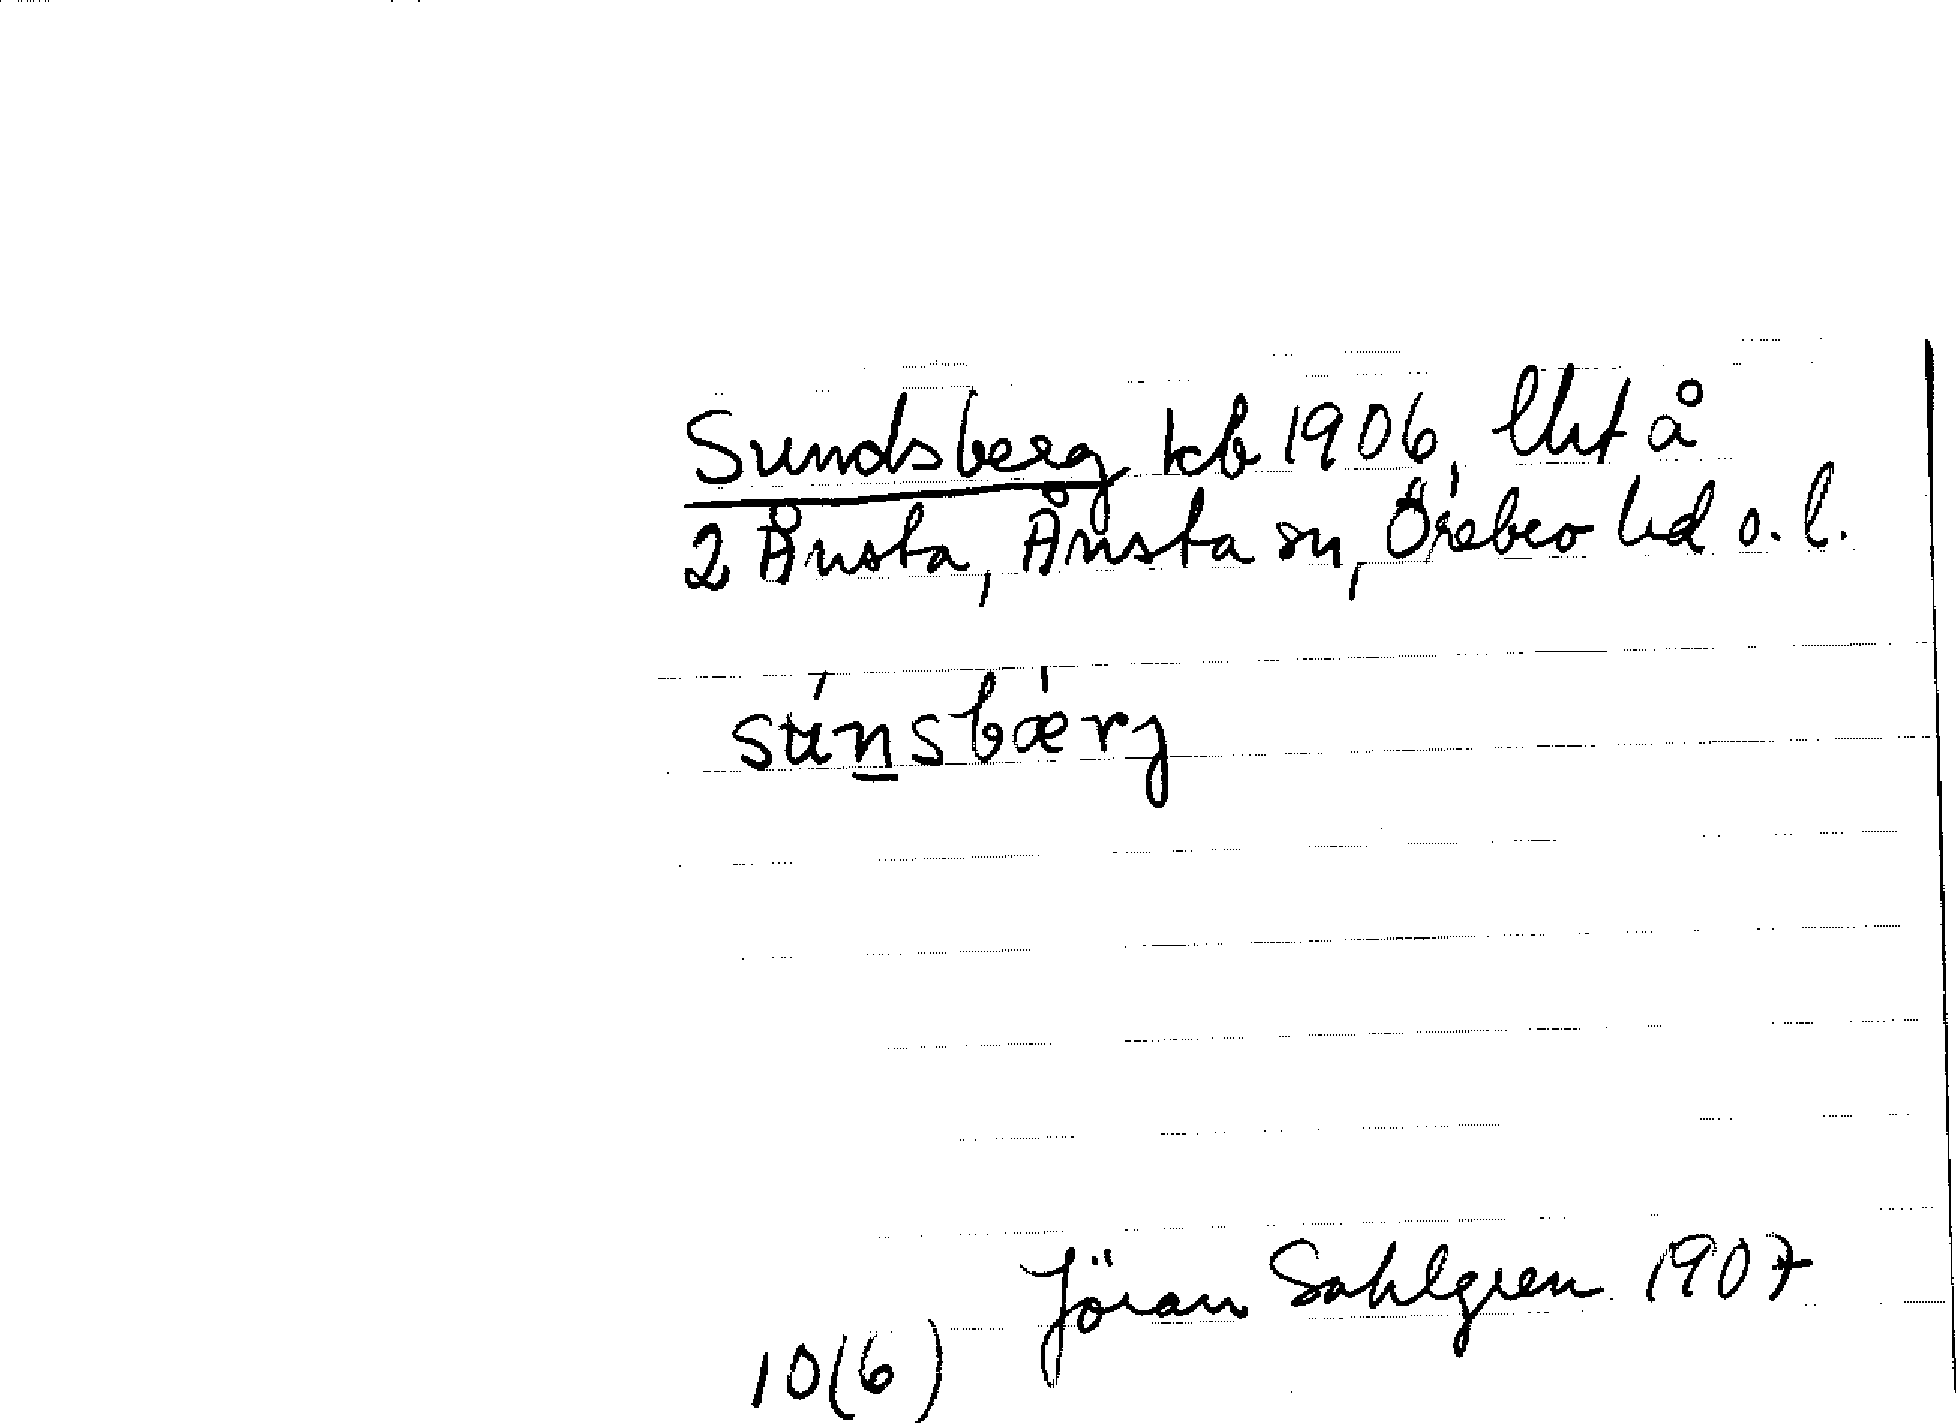 Sundsberg kb 1906, lht å
2 Ånsta, Ånsta sn, Örebro hd o. l.
sún̲sbærj
Jöran Sahlgren 1907
10(6)